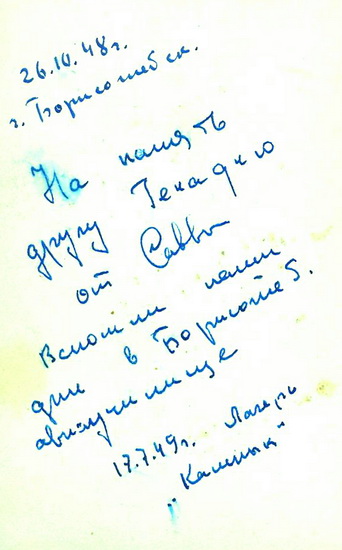 26.10.48г.
г. Борисоглебск.
На память
другу Генадию
от Саввы
Вспомни наши
дни в Борисоглеб.
авиаучилище
17.7.49г. Лагерь
"Калмык"